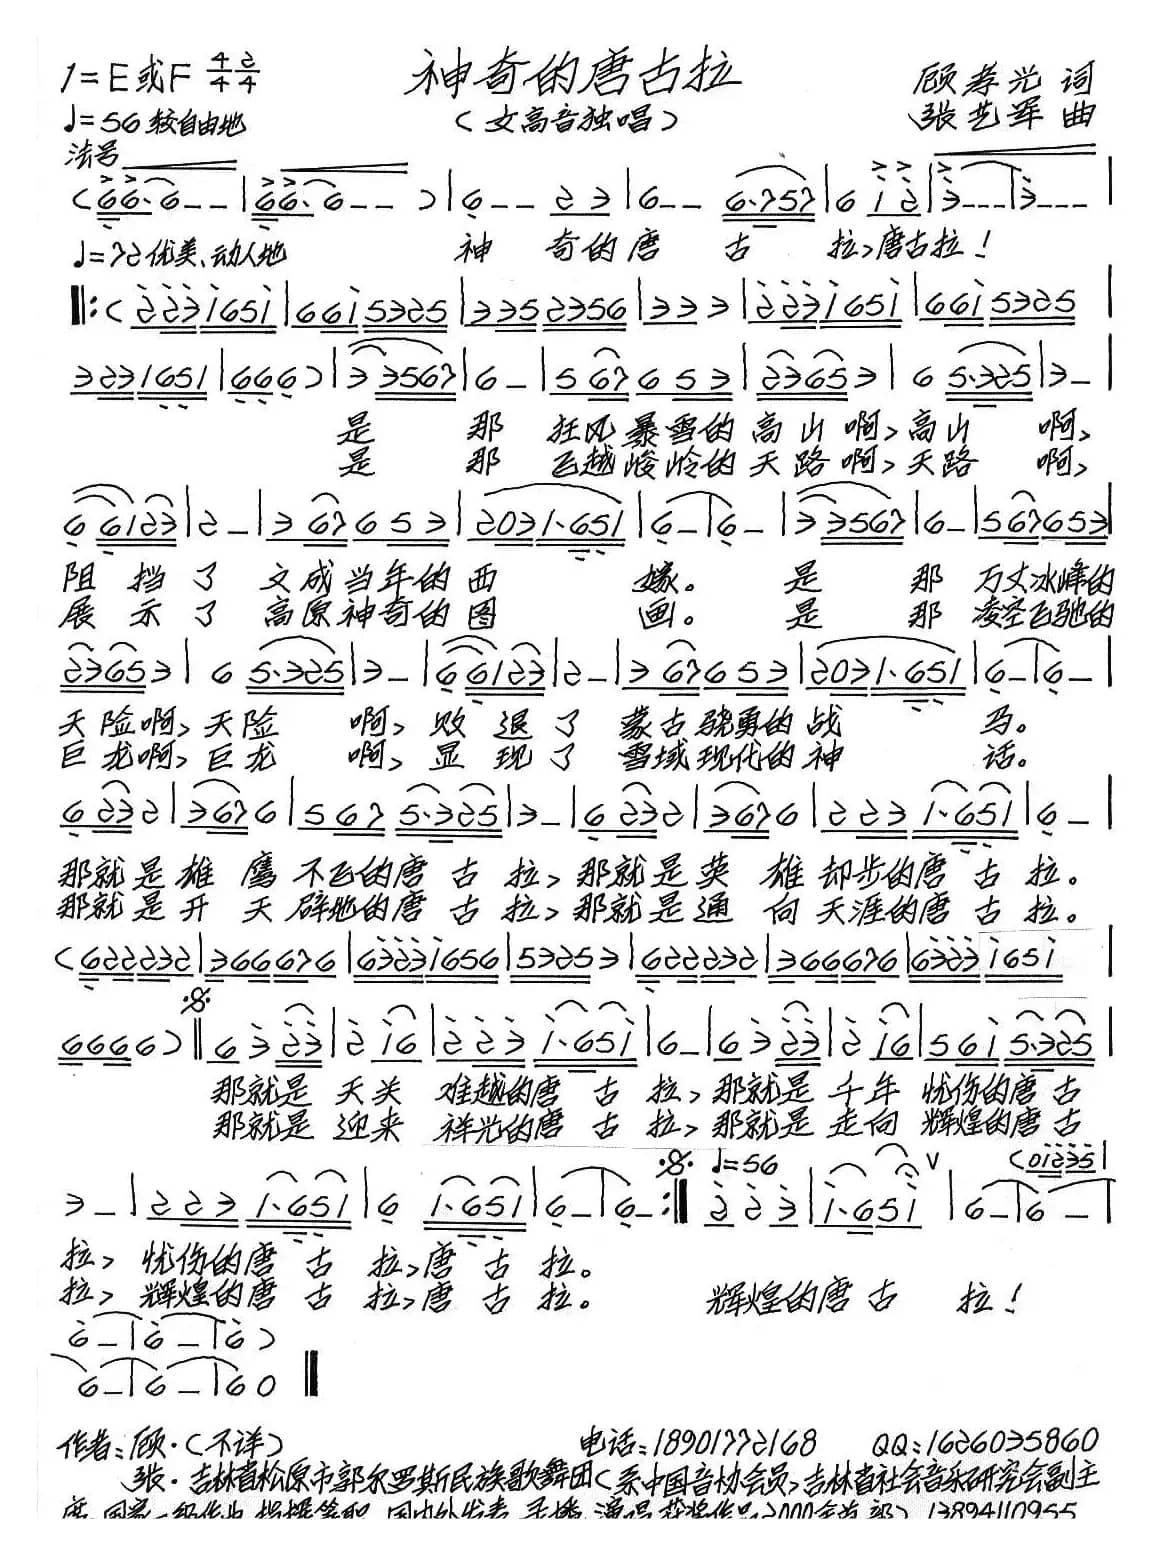 1=E或F 4/4 2/4
神奇的唐古拉
顾孝光 词
♩=56 较自由地
(女高音独唱)
张艺军 曲
法号
(66·6--|66·6--)|6-- 23|6-- 6·757|6 12|3---|3---|
♩=72 优美、动人地
神 奇的唐 古 拉,唐古拉!
‖:(2231651|6615325|3352356|333|2231651|6615325|
3231651|666)|33567|6-|567653|23653|65·325|3-|
是 那 狂风暴雪的高山啊,高山 啊,
是 那 飞越峻岭的天路啊,天路 啊,
66123|2-|367653|2031·651|6-|6-|33567|6-|567653|
阻挡了 文成当年的西 嫁。 是 那 万丈冰峰的
展示了 高原神奇的图 画。 是 那 凌空飞驰的
23653|65·325|3-|66123|2-|367653|2031·651|6-|6-|
天险啊,天险 啊,败退了 蒙古骁勇的战 马。
巨龙啊,巨龙 啊,显现了 雪域现代的神 话。
6232|3676|5675·325|3-|6232|3676|2231·651|6-|
那就是雄鹰不飞的唐古拉,那就是英雄却步的唐古拉。
那就是开天辟地的唐古拉,那就是通向天涯的唐古拉。
(622232|366676|63231656|53253|622232|366676|63231651|
6666)‖6323|216|2231·651|6-|6323|216|5615·325|
那就是天关难越的唐古拉,那就是千年忧伤的唐古
那就是迎来祥光的唐古拉,那就是走向辉煌的唐古
♩=56
(01235|
3-|2231·651|61·651|6-|6-:‖223|1·651|6-|6-|
拉,忧伤的唐古拉,唐古拉。
拉,辉煌的唐古拉,唐古拉。 辉煌的唐古拉!
6-|6-|6)
6-|6-|60‖
作者:顾·(不详) 电话:18901772168 QQ:1626035860
张·吉林省松原市郭尔罗斯民族歌舞团(系中国音协会员,吉林省社会音乐研究会副主